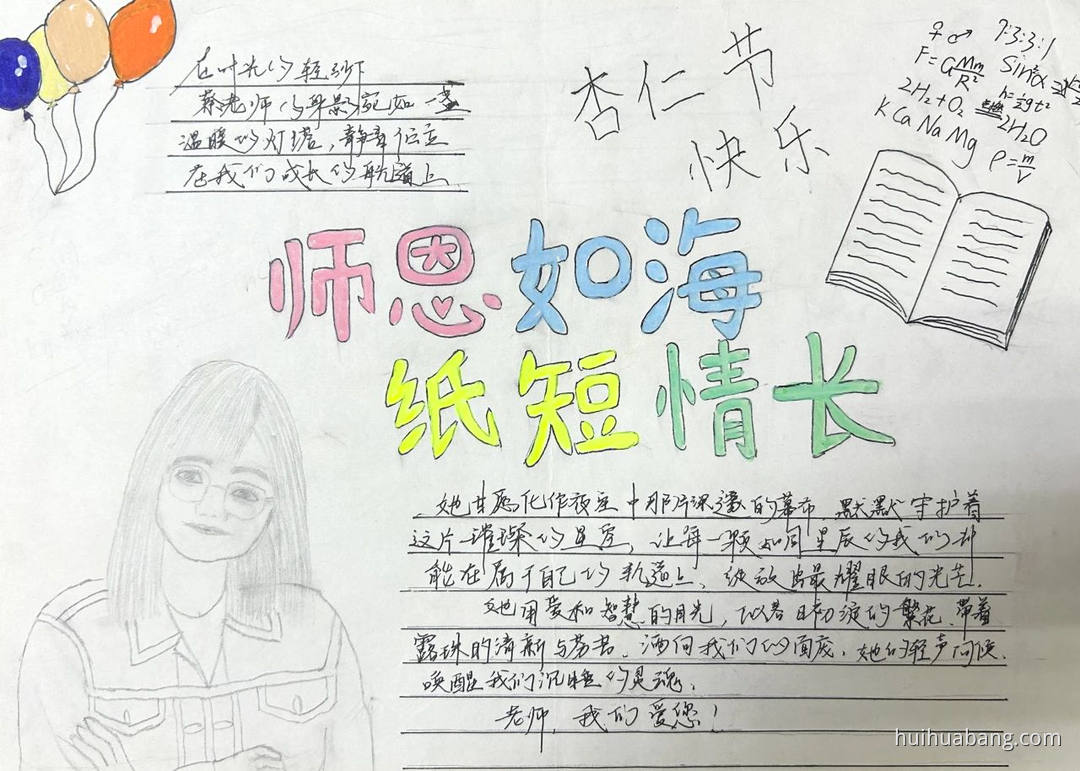 在时光的轻纱下
蔡老师的身影宛如一盏
温暖的灯塔，静静伫立
在我们成长的航道上
杏仁节
快乐
♀ ♂ 7:3:3:1
F=G Mm/R² Sin²α
2H₂+O₂ 点燃 2H₂O h=½gt²
K Ca Na Mg ρ=m/V
师恩如海
纸短情长
她甘愿化作夜空中那片深邃的幕布，默默守护着
这片璀璨的星空，让每一颗如同星辰的我们都
能在属于自己的轨道上，绽放出最耀眼的光芒。
她用爱和智慧的目光，似若晴澜的繁花，带着
露珠的清新与芬芳，洒向我们的面庞，她的轻声问候，
唤醒我们沉睡的灵魂。
老师，我们爱您！
huihuabang.com